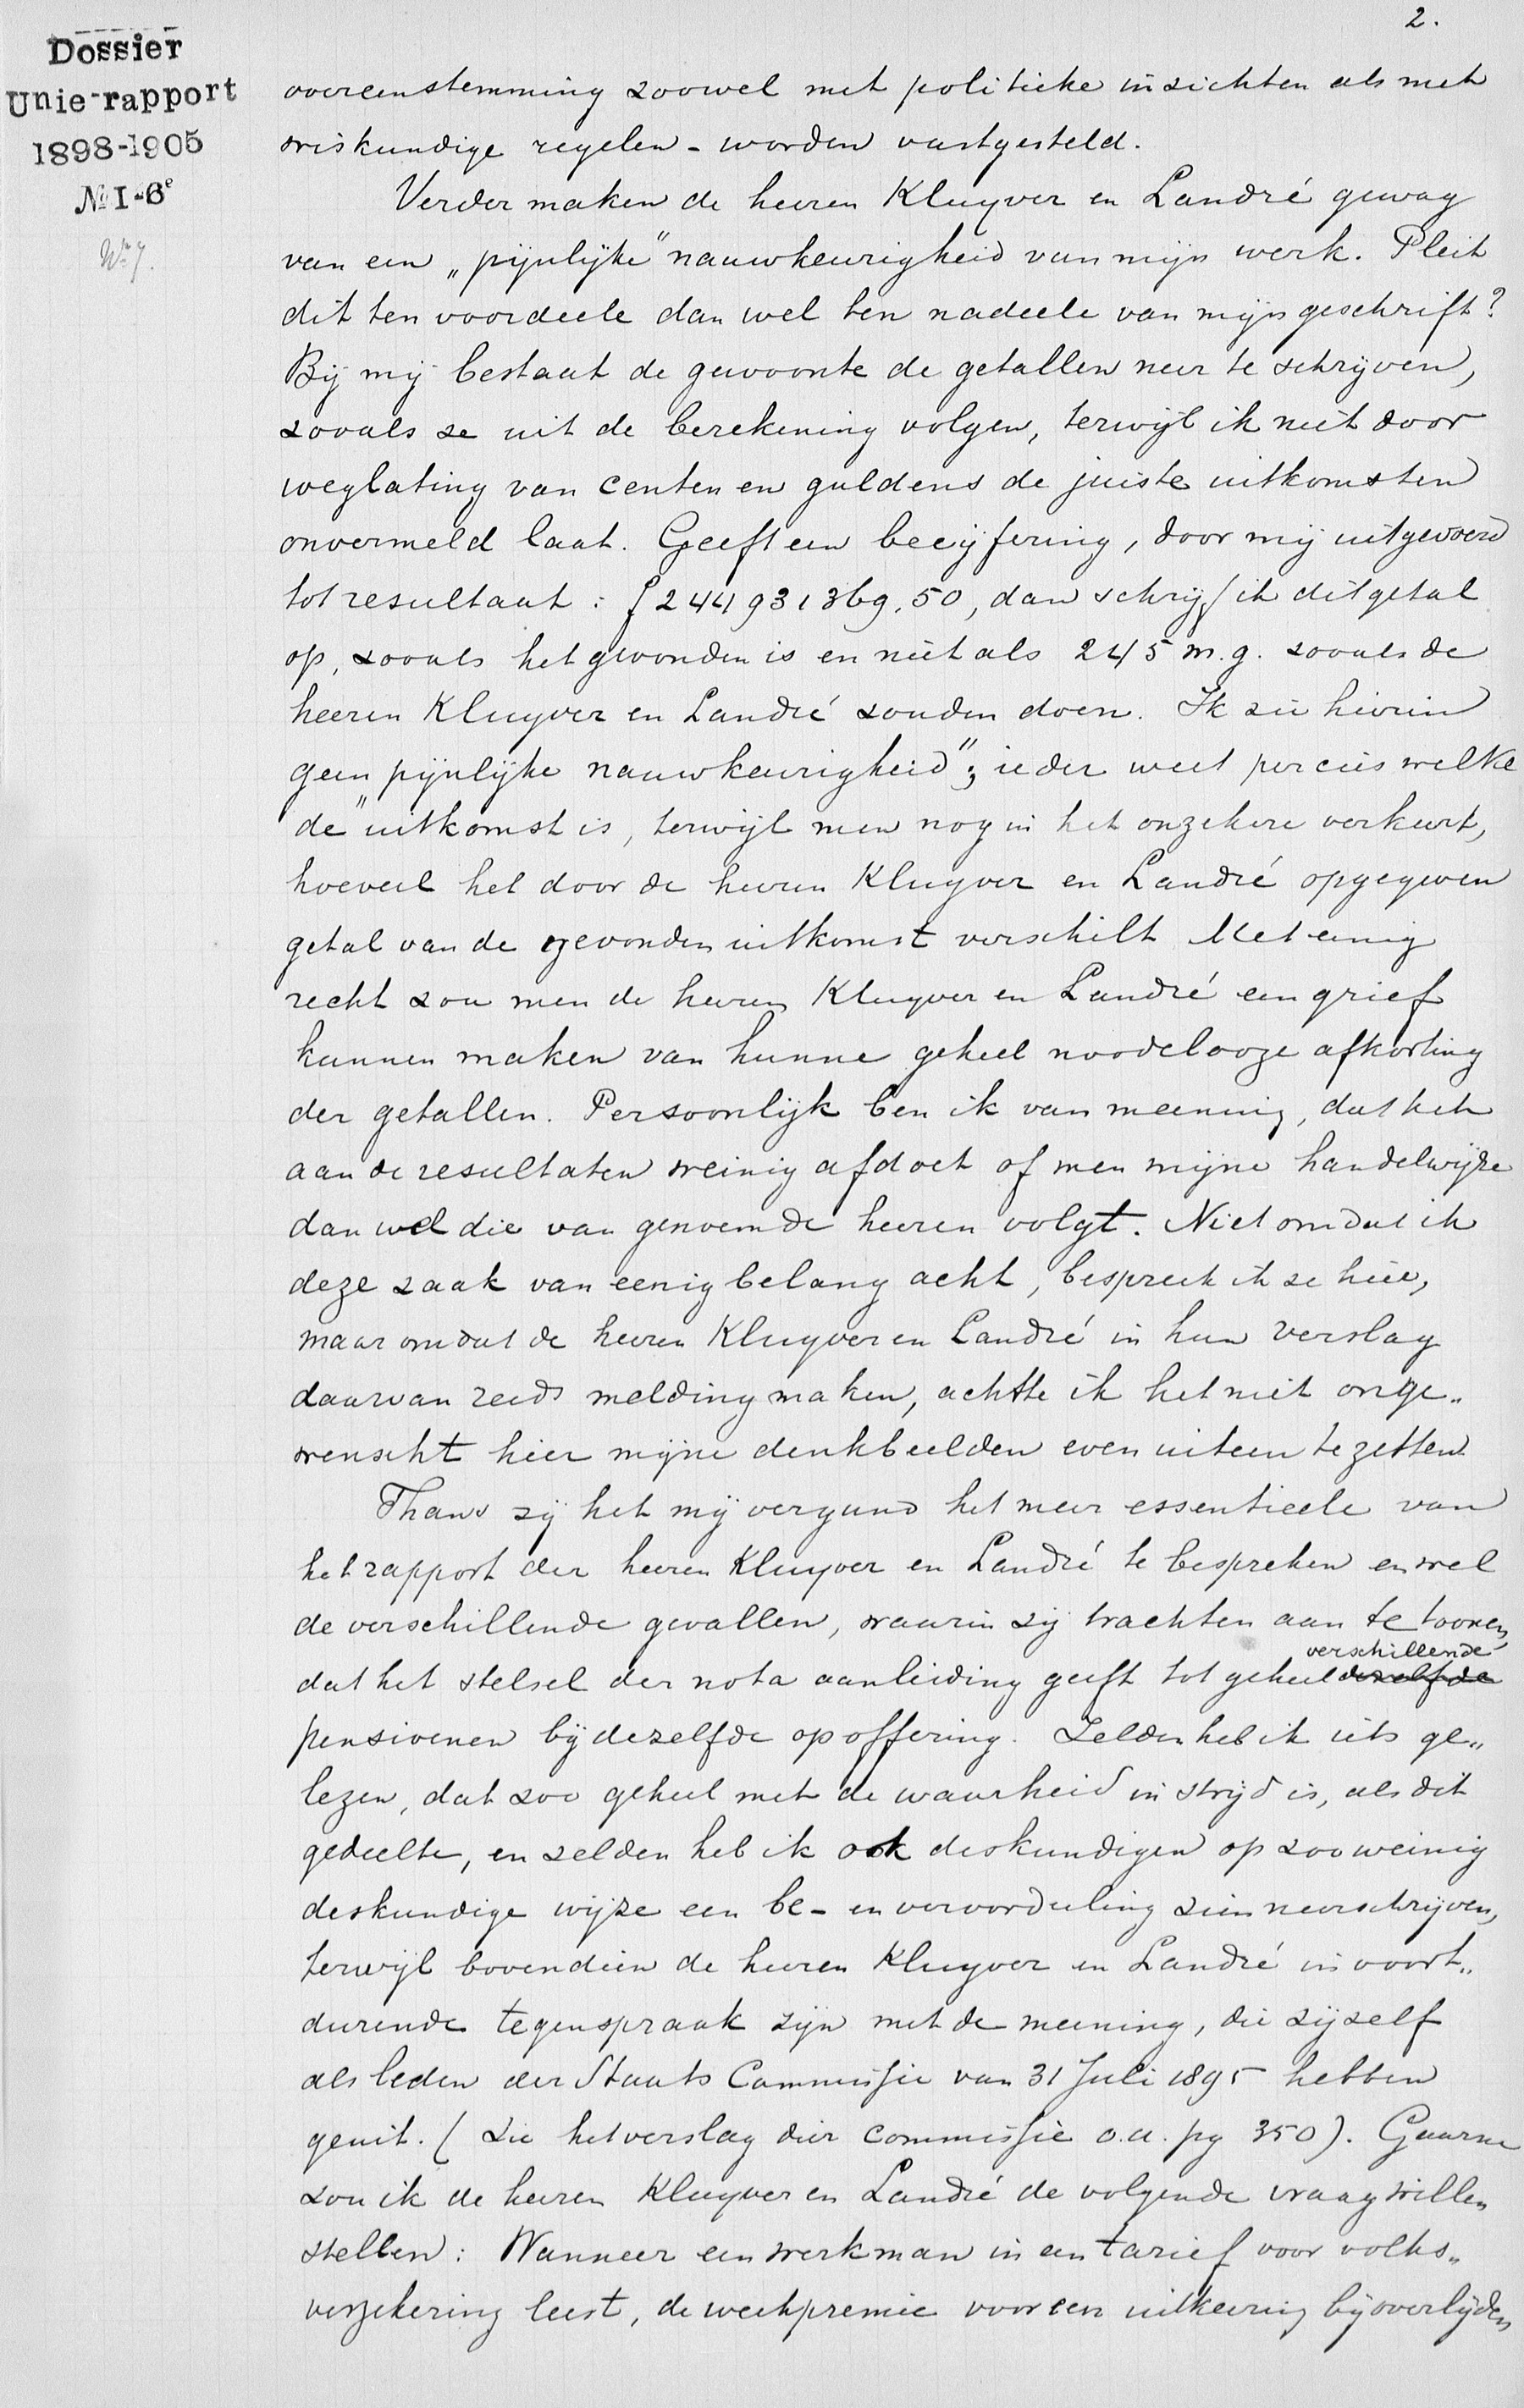 2.
Dossier
Unie-rapport
1898-1905
No I-6e
No 7.
overeenstemming zoowel met politieke inzichten als met
wiskundige regelen - worden vastgesteld.
Verder maken de heeren Kluyver en Landré gewag
van een „pijnlijke" nauwkeurigheid van mijn werk. Pleit
dit ten voordeele dan wel ten nadeele van mijn geschrift?
Bij mij bestaat de gewoonte de getallen neer te schrijven,
zooals ze uit de berekening volgen, terwijl ik niet door
weglating van centen en guldens de juiste uitkomsten
onvermeld laat. Geeft een becijfering, door mij uitgevoerd
tot resultaat: f 244931369.50, dan schrijf ik dit getal
op, zooals het gevonden is en niet als 245 m.g. zooals de
heeren Kluyver en Landré zouden doen. Ik zie hierin
geen „pijnlijke nauwkeurigheid"; ieder weet precies welke
de uitkomst is, terwijl men nog in het onzekere verkeert,
hoeveel het door de heeren Kluyver en Landré opgegeven
getal van de gevonden uitkomst verschilt. Met eenig
recht zou men de heeren Kluyver en Landré een grief
kunnen maken van hunne geheel noodelooze afkorting
der getallen. Persoonlijk ben ik van meening, dat het
aan de resultaten weinig afdoet of men mijne handelwijze
dan wel die van genoemde heeren volgt. Niet omdat ik
deze zaak van eenig belang acht, bespreek ik ze hier,
maar omdat de heeren Kluyver en Landré in hun verslag
daarvan reeds melding maken, achtte ik het niet onge„
wenscht hier mijne denkbeelden even uiteen te zetten.
Thans zij het mij vergund het meer essentieele van
het rapport der heeren Kluyver en Landré te bespreken en wel
de verschillende gevallen, waarin zij trachten aan te toonen,
verschillende
dat het stelsel der nota aanleiding geeft tot geheel dezelfde
pensioenen bij dezelfde opoffering. Zelden heb ik iets ge„
lezen, dat zoo geheel met de waarheid in strijd is, als dit
gedeelte, en zelden heb ik ook deskundigen op zoo weinig
deskundige wijze een be- en veroordeeling zien neerschrijven,
terwijl bovendien de heeren Kluyver en Landré in voort„
durende tegenspraak zijn met de meening, die zijzelf
als leden der Staats Commissie van 31 Juli 1895 hebben
geuit. (Zie het verslag dier commissie o.a. pg 350). Gaarne
zou ik de heeren Kluyver en Landré de volgende vraag willen
stellen: Wanneer een werkman in een tarief voor volks„
verzekering leest, de weekpremie voor een uitkeering bij overlijden